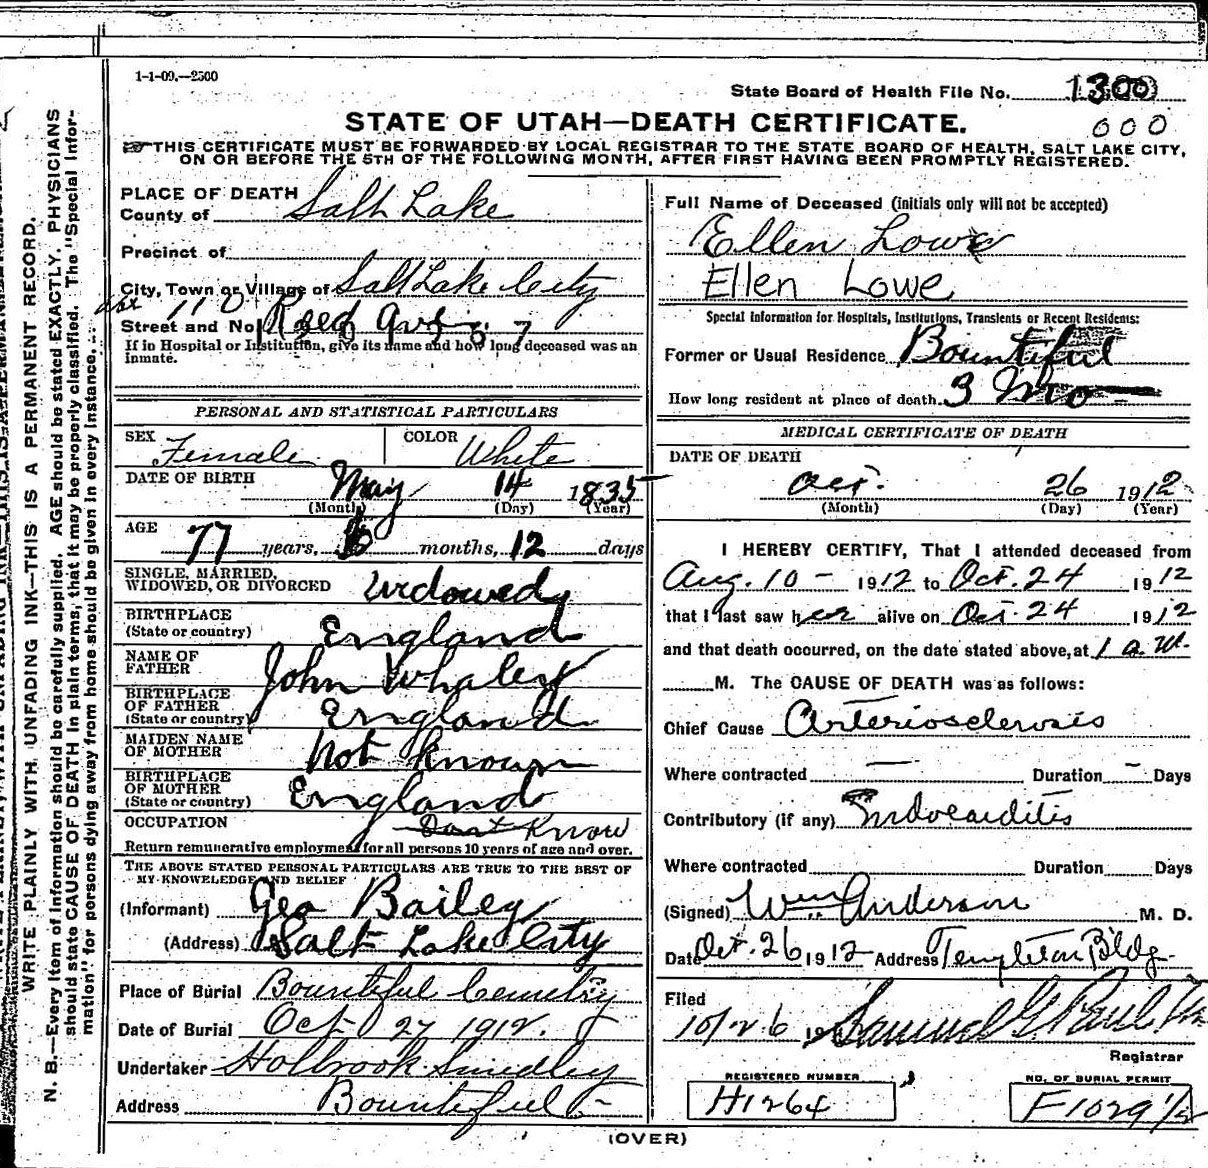 1-1-09.—2500
State Board of Health File No. 1300
000
STATE OF UTAH—DEATH CERTIFICATE.
THIS CERTIFICATE MUST BE FORWARDED BY LOCAL REGISTRAR TO THE STATE BOARD OF HEALTH, SALT LAKE CITY,
ON OR BEFORE THE 5TH OF THE FOLLOWING MONTH, AFTER FIRST HAVING BEEN PROMPTLY REGISTERED.
WRITE PLAINLY WITH UNFADING INK—THIS IS A PERMANENT RECORD.
N. B.—Every item of information should be carefully supplied. AGE should be stated EXACTLY. PHYSICIANS
should state CAUSE OF DEATH in plain terms, that it may be properly classified. The "Special Infor-
mation" for persons dying away from home should be given in every instance.
PLACE OF DEATH
County of Salt Lake
Precinct of
City, Town or Village of Salt Lake City
110
Street and No. Reed Ave
If in Hospital or Institution, give its name and how long deceased was an
inmate.
PERSONAL AND STATISTICAL PARTICULARS
SEX Female COLOR White
DATE OF BIRTH May 14 1835
(Month) (Day) (Year)
AGE 77 years, months, 12 days
SINGLE, MARRIED,
WIDOWED, OR DIVORCED Widowed
BIRTHPLACE
(State or country) England
NAME OF
FATHER John Whaley
BIRTHPLACE
OF FATHER
(State or country) England
MAIDEN NAME
OF MOTHER Not Known
BIRTHPLACE
OF MOTHER
(State or country) England
OCCUPATION Dont Know
Return remunerative employment for all persons 10 years of age and over.
THE ABOVE STATED PERSONAL PARTICULARS ARE TRUE TO THE BEST OF
MY KNOWLEDGE AND BELIEF
(Informant) Geo Bailey
(Address) Salt Lake City
Place of Burial Bountiful Cemetry
Date of Burial Oct 27 1912.
Undertaker Holbrook Smedley
Address Bountiful
Full Name of Deceased (initials only will not be accepted)
Ellen Lowe
Ellen Lowe
Special Information for Hospitals, Institutions, Transients or Recent Residents:
Former or Usual Residence Bountiful
How long resident at place of death. 3 Mo
MEDICAL CERTIFICATE OF DEATH
DATE OF DEATH
Oct. 26 1912
(Month) (Day) (Year)
I HEREBY CERTIFY, That I attended deceased from
Aug. 10 - 1912 to Oct. 24 1912
that I last saw her alive on Oct. 24 1912
and that death occurred, on the date stated above, at 1 a.m.
M. The CAUSE OF DEATH was as follows:
Chief Cause Arteriosclerosis
Where contracted — Duration - Days
Contributory (if any) Endocarditis
Where contracted Duration Days
(Signed) Wm. Anderson M. D.
Date Oct. 26 1912 Address Templeton Bldg.
Filed
10/26 19 Samuel G. Paul
Registrar
REGISTERED NUMBER
H1264
NO. OF BURIAL PERMIT
F1029½
(OVER)